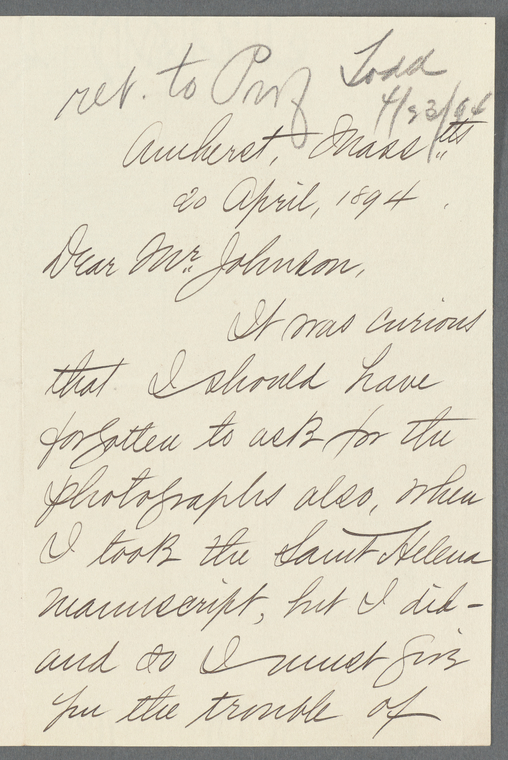 ret. to Prof Todd
4/23/94
Amherst, Mass"tts
20 April, 1894.
Dear Mr. Johnson,
It was curious
that I should have
forgotten to ask for the
photographs also, when
I took the Saint Helena
manuscript, but I did –
and so I must give
you the trouble of